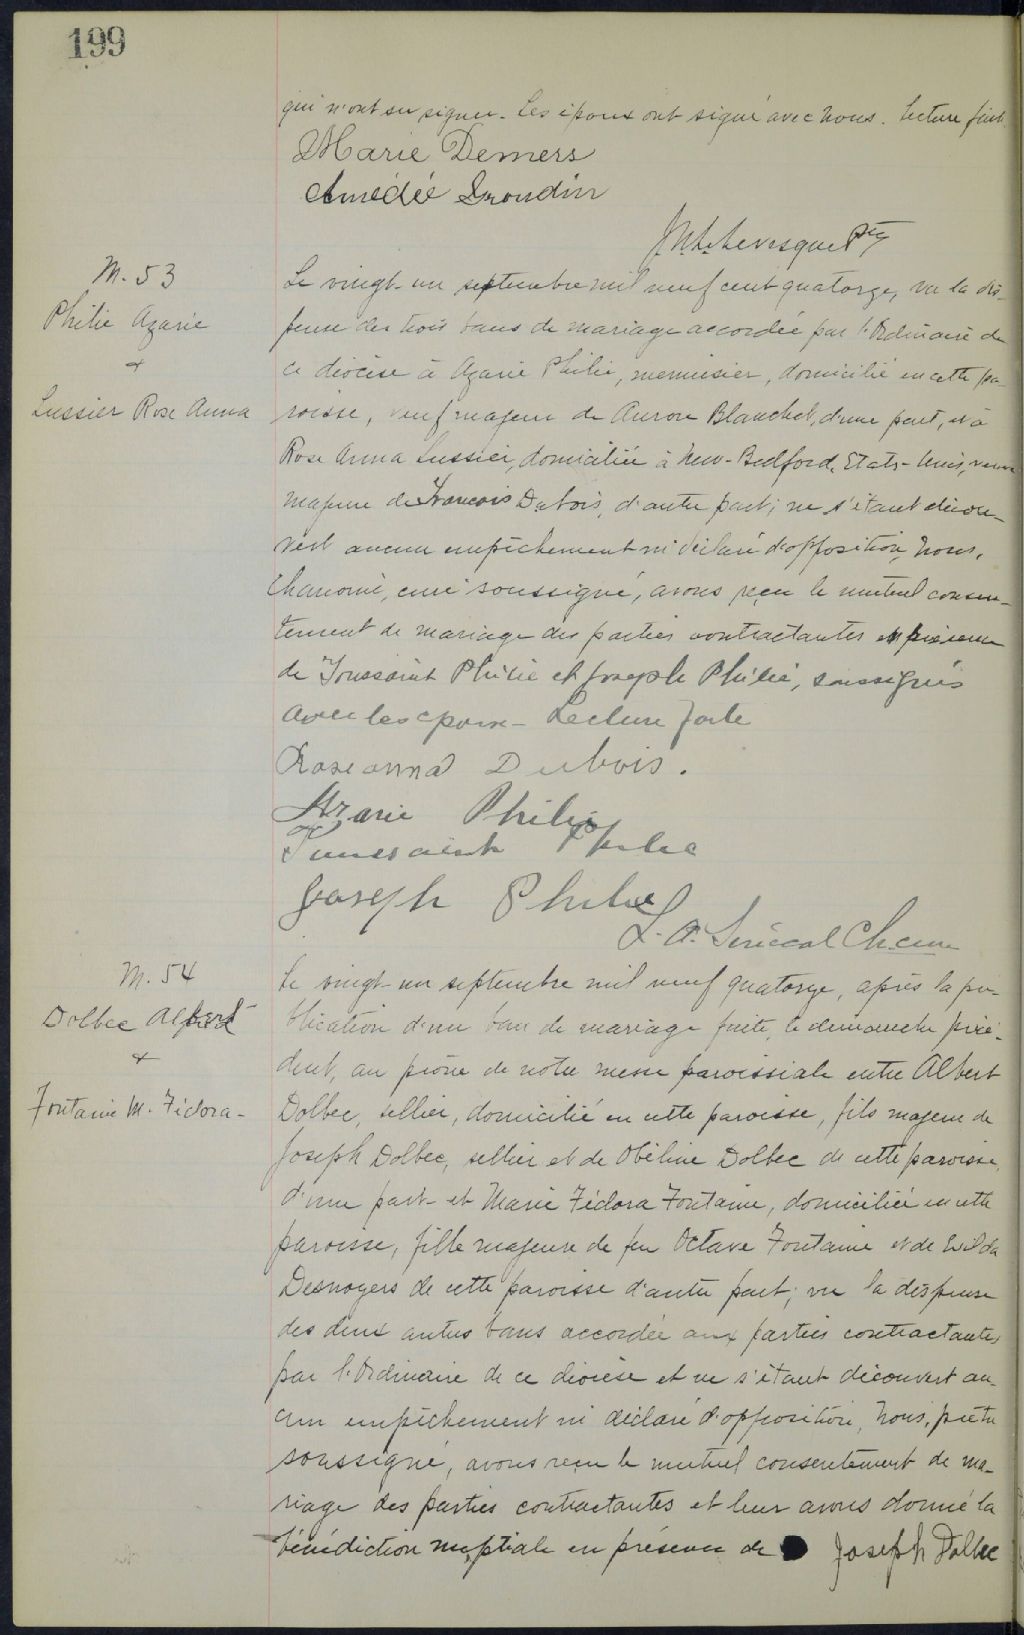 199
qui n'ont su signer. Les époux ont signé avec nous. Lecture faite
Marie Demers
Amédée Grondin
Levesque Ptre
M. 53
Philie Azarie
+
Lussier Rose Anna
Le vingt-un septembre mil neuf cent quatorze, vu la dis-
pense des trois bans de mariage accordée par l'Ordinaire de
ce diocèse à Azarie Philie, menuisier, domicilié en cette pa-
roisse, veuf majeur de Aurore Blanchet, d'une part, et à
Rose Anna Lussier, domiciliée à New-Bedford, Etats-Unis, veuve
majeure de Francois Dubois, d'autre part; ne s'étant décou-
vert aucun empêchement ni déclaré d'opposition, Nous,
Chanoine, curé soussigné, avons reçu le mutuel consen-
tement de mariage des parties contractantes en présence
de Toussaint Philie et Joseph Philie, soussignés
avec les epoux - Lecture faite
Roseanna Dubois.
Azarie Philie
Toussaint Philie
Joseph Philie
L. A. Sénécal Ch. curé
M. 54
Dolbec Albert
+
Fontaine M. Fédora -
Le vingt-un septembre mil neuf quatorze, après la pu-
blication d'un ban de mariage faite, le dimanche précé-
dent, au prône de notre messe paroissiale entre Albert
Dolbec, sellier, domicilié en cette paroisse, fils majeur de
Joseph Dolbec, sellier et de Obéline Dolbec de cette paroisse,
d'une part et Marie Fédora Fontaine, domiciliée en cette
paroisse, fille majeure de feu Octave Fontaine et de Exilda
Desnoyers de cette paroisse d'autre part; vu la dispense
des deux autres bans accordée aux parties contractantes
par l'Ordinaire de ce diocèse et ne s'étant découvert au-
cun empêchement ni déclaré d'opposition, Nous, prêtre
soussigné, avons reçu le mutuel consentement de ma-
riage des parties contractantes et leur avons donné la
bénédiction nuptiale en présence de Joseph Dolbec